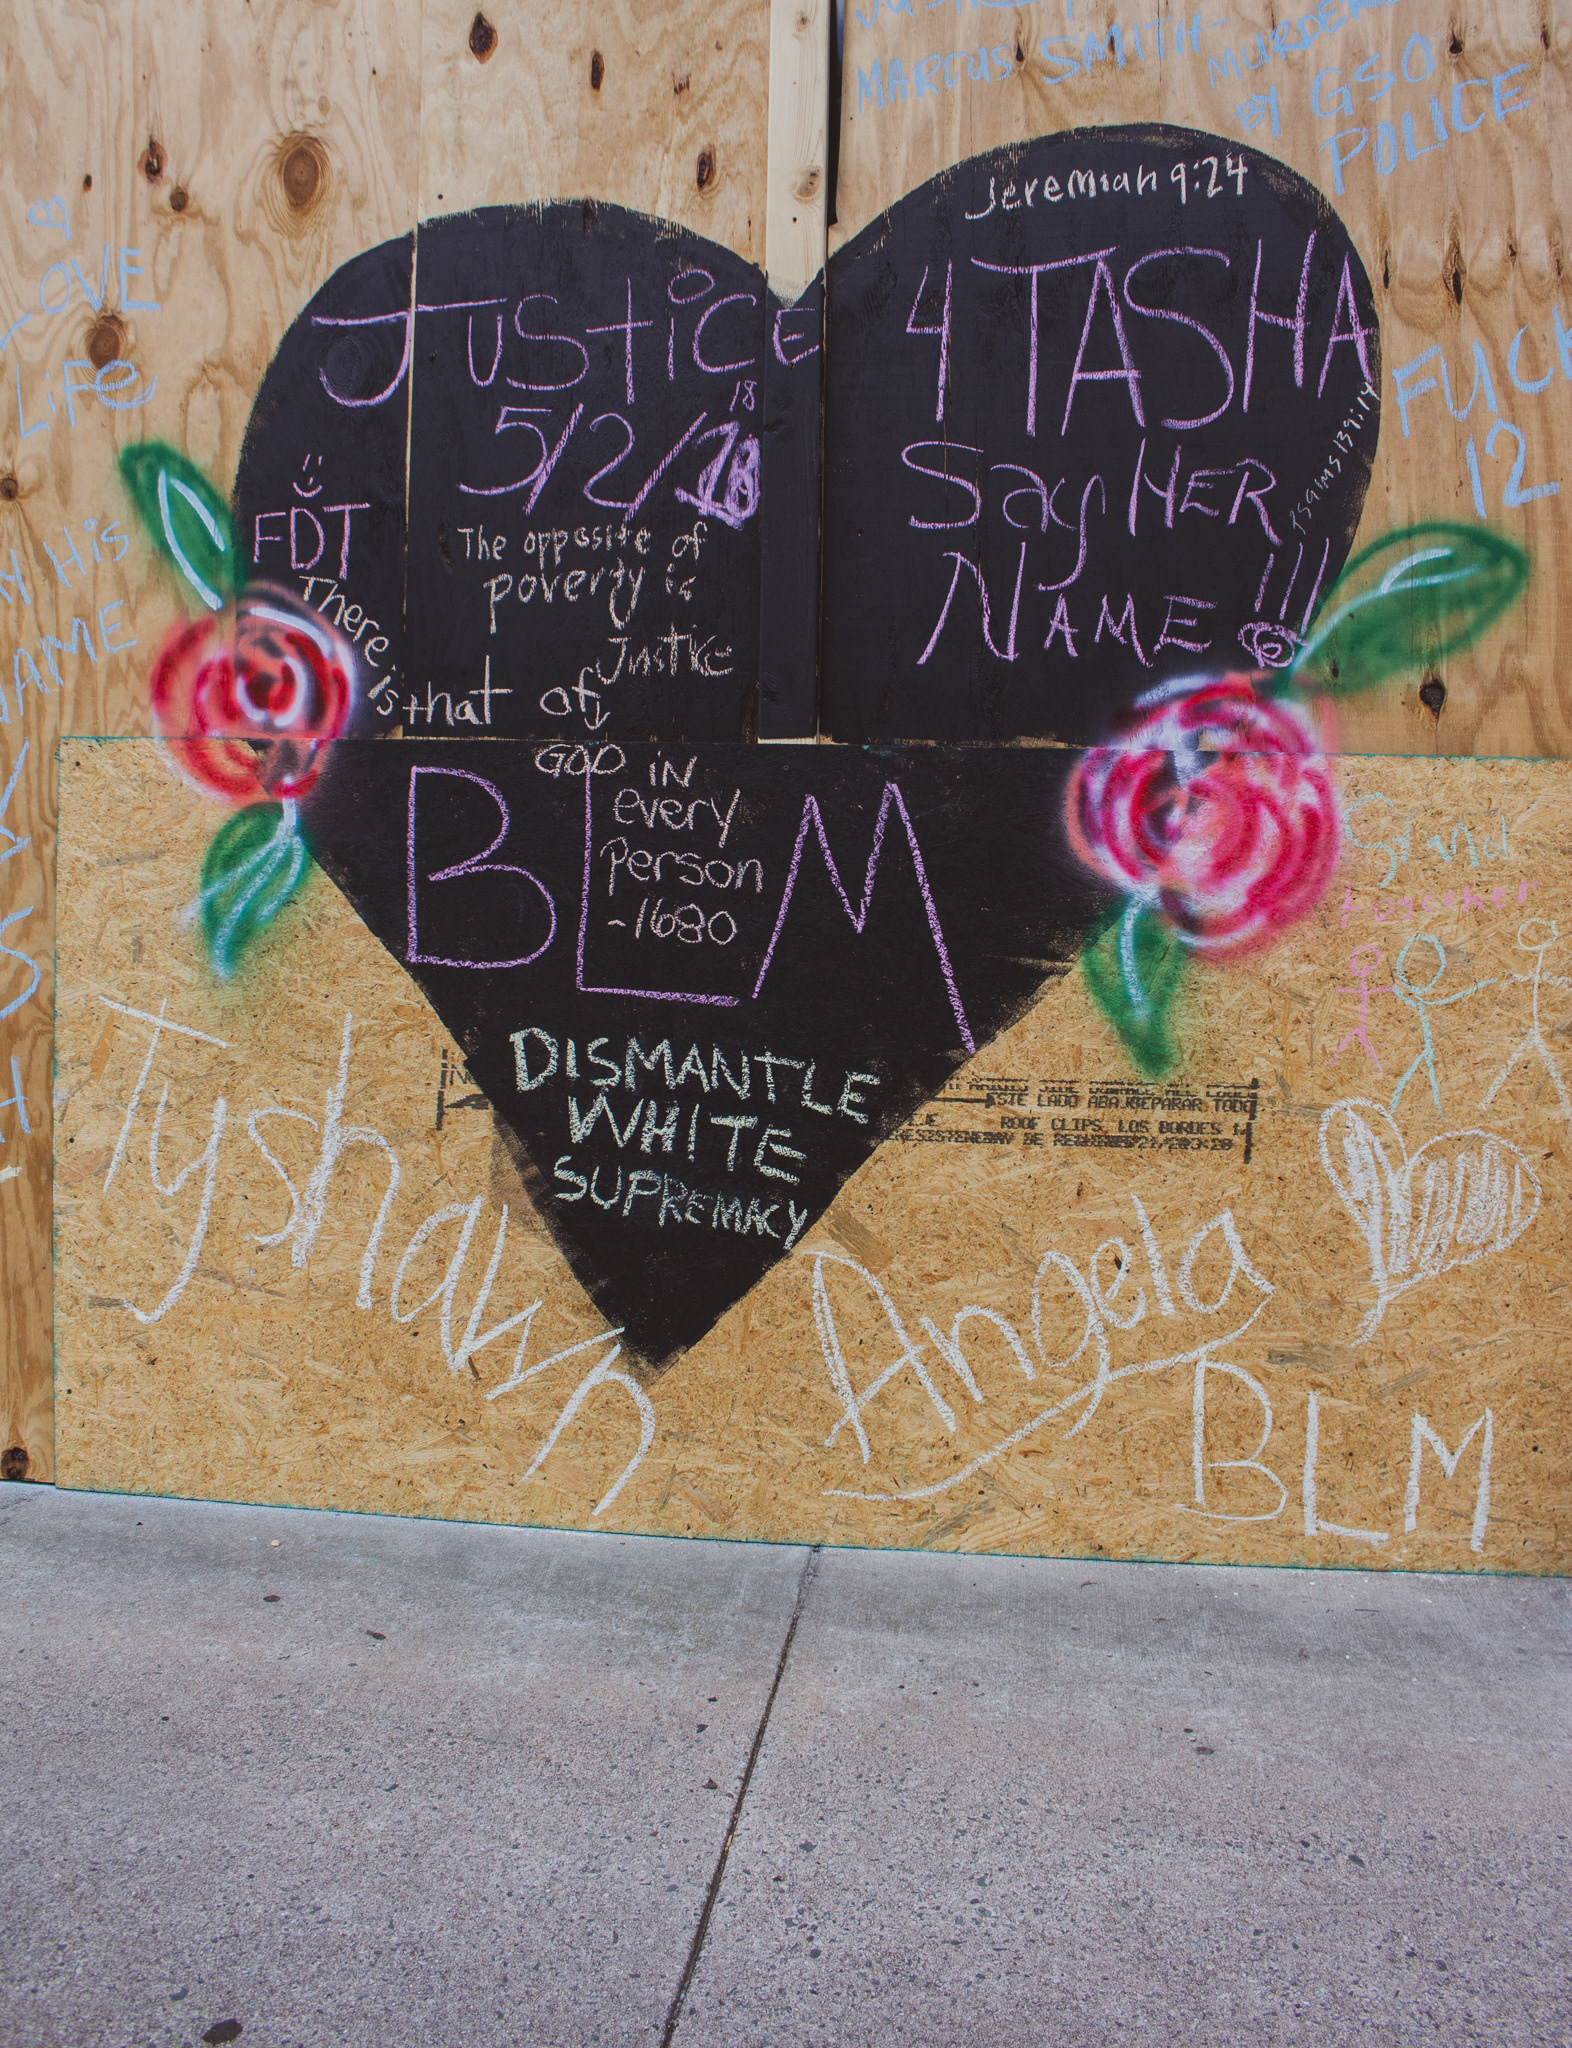 MARCUS SMITH - MURDERED
BY GSO
POLICE
Jeremiah 9:24
LOVE
LiFe
JUSTiCE 4 TASHA
18
5/2/
FUCK
12
Say HER
NAME!!!
FDT
The opposite of
poverty is
Justice
There is that of
GOD IN
every
Person
-1680
HiS
NAME
BLM
Stand
together
DISMANTLE
WHITE
SUPREMACY
ESTE LADO ABAJO
ROOF CLIPS. LOS BORDES
Tyshawn
Angela
BLM